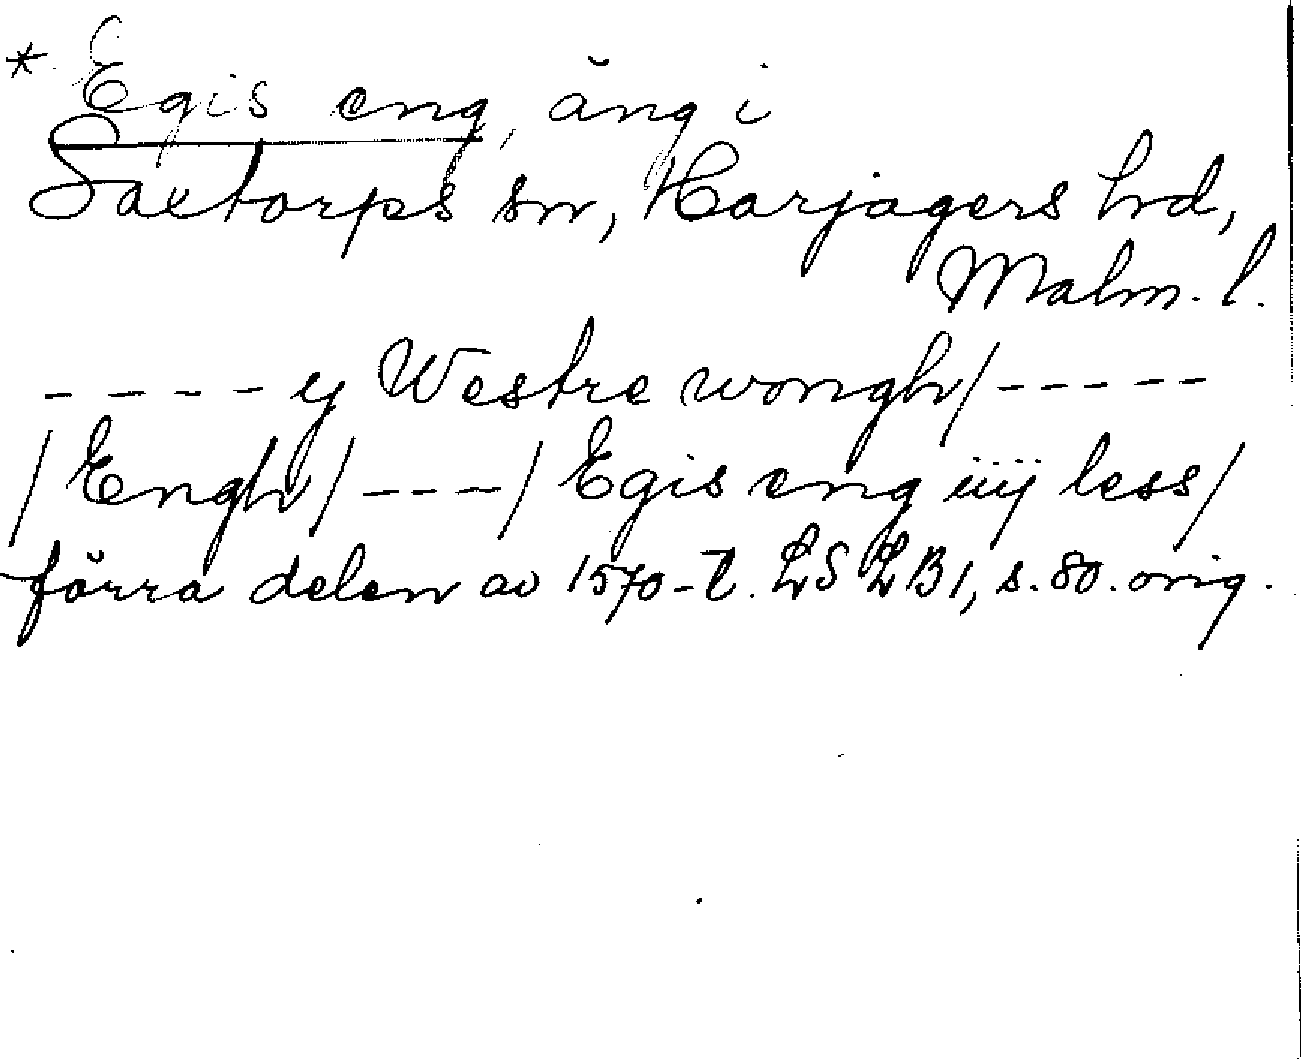 * Egis eng, äng i
Saxtorps sn, Harjagers hd,
Malm. l.
- - - - - y Westre wongh/ - - - - -
/Engh/ - - - - /Egis eng iiij less/
förra delen av 1570-t. LS LB 1, s. 80. orig.